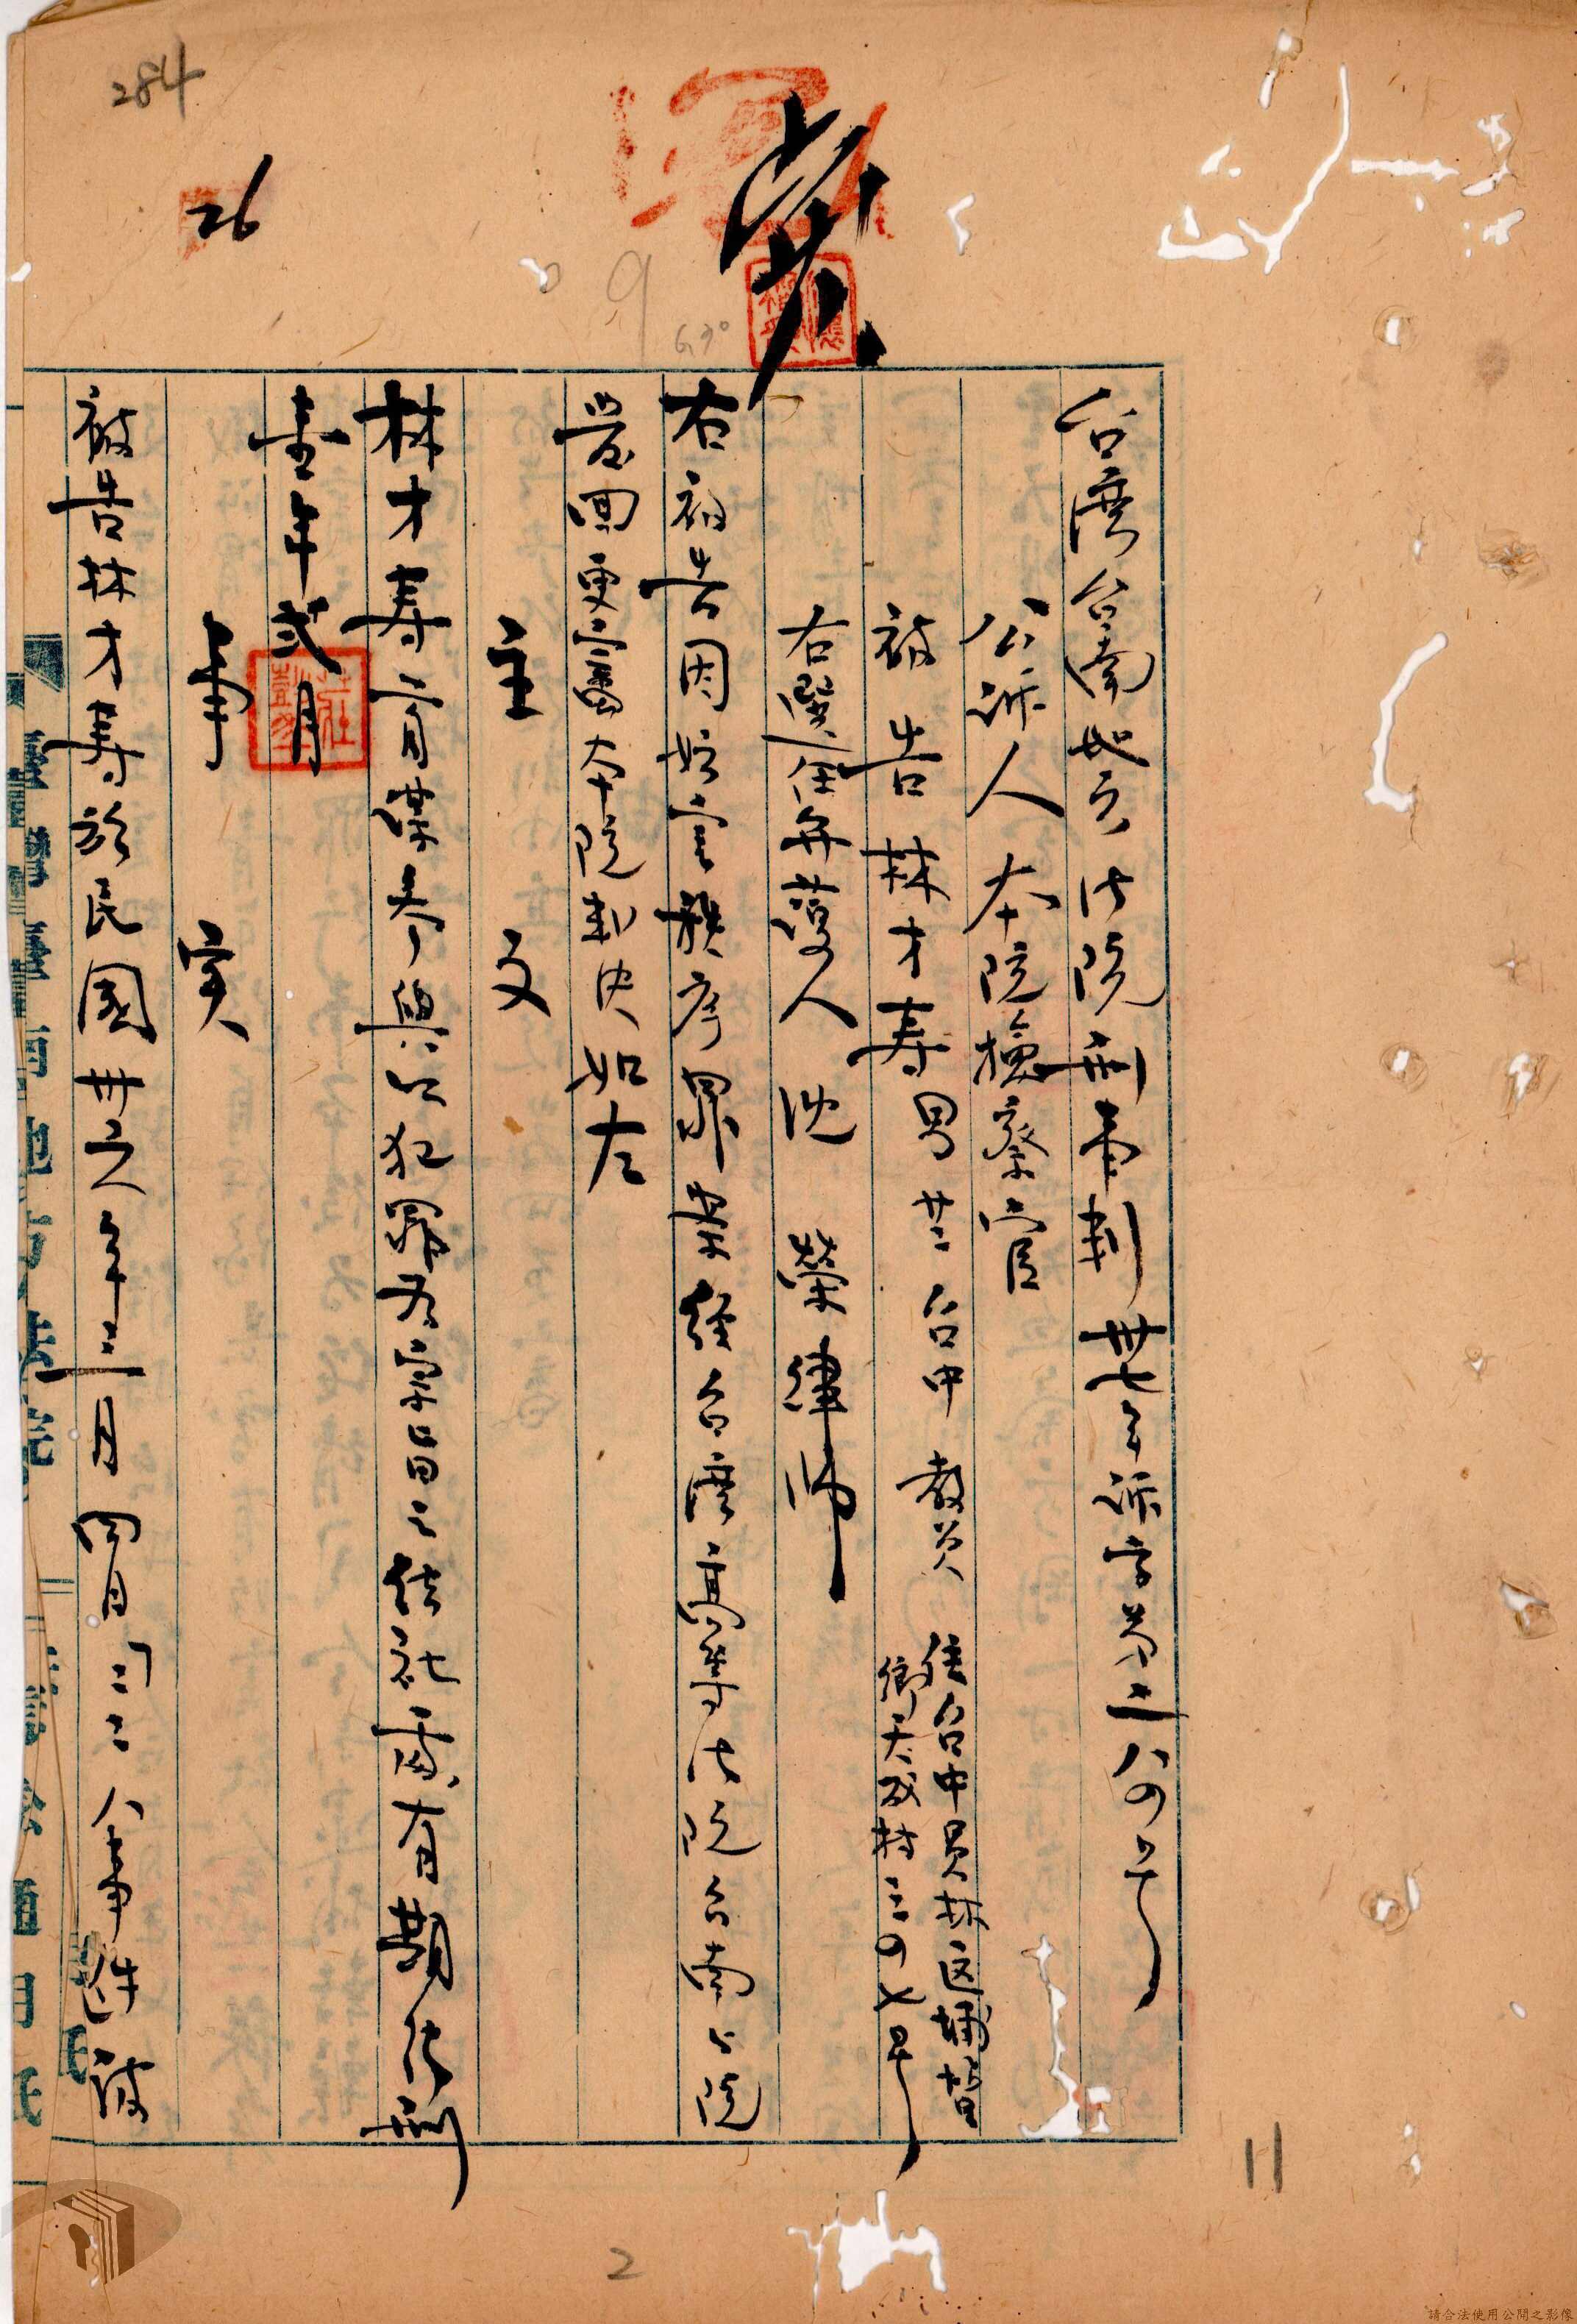 284
26
台灣台南地方法院刑事判卅七年訴字第二八四号
公訴人 本院檢察官
被告 林才壽 男 廿二 台中 教員 住台中員林区埔鹽
鄉天盛村三四七号
右選任弁護人 沈 榮 律師
右被告因妨害秩序罪案經台灣高等法院台南分院
發回更審本院判決如左
主 文
林才壽首謀參與以犯罪為宗旨之結社處有期徒刑
壹年弍月
事 實
被告林才壽於民國卅六年三月間因二二八事件被
11
2
請合法使用公開之影像